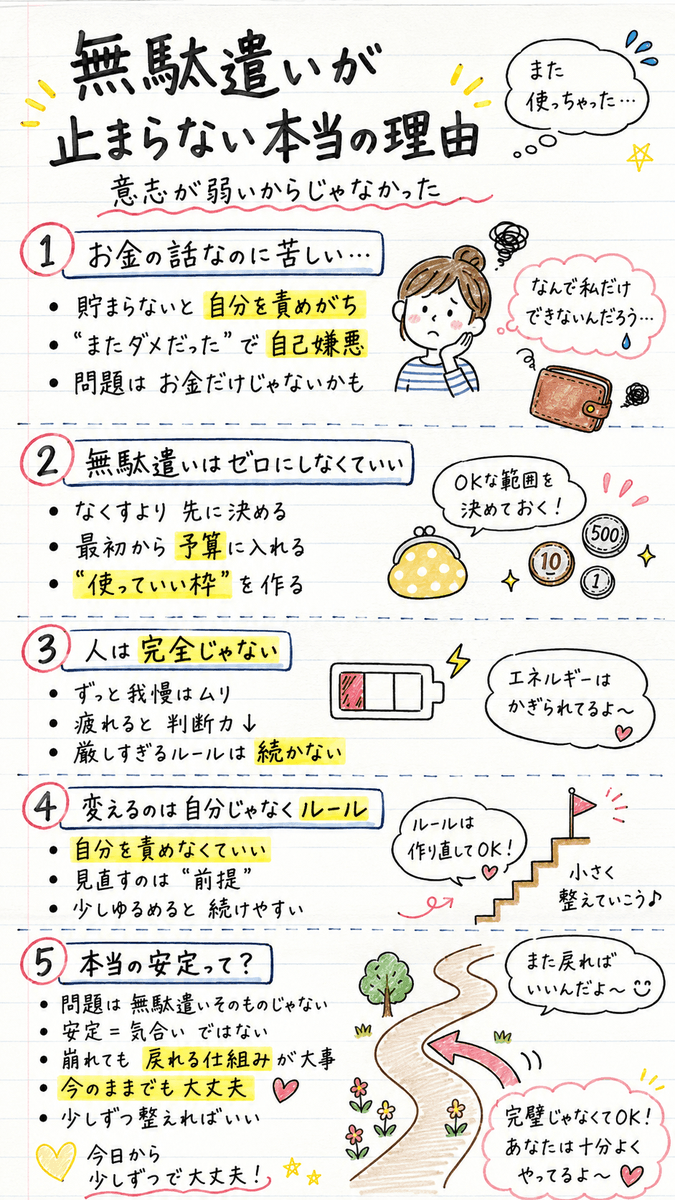 無駄遣いが
止まらない本当の理由
意志が弱いからじゃなかった
また
使っちゃった…
1 お金の話なのに苦しい…
• 貯まらないと 自分を責めがち
• “またダメだった”で 自己嫌悪
• 問題は お金だけじゃないかも
なんで私だけ
できないんだろう…
2 無駄遣いはゼロにしなくていい
• なくすより 先に決める
• 最初から 予算に入れる
• “使っていい枠”を作る
OKな範囲を
決めておく！
500
10
1
3 人は完全じゃない
• ずっと我慢はムリ
• 疲れると 判断力↓
• 厳しすぎるルールは 続かない
エネルギーは
かぎられてるよ〜
4 変えるのは自分じゃなくルール
• 自分を責めなくていい
• 見直すのは “前提”
• 少しゆるめると 続けやすい
ルールは
作り直してOK！
小さく
整えていこう♪
5 本当の安定って？
• 問題は 無駄遣いそのものじゃない
• 安定＝気合い ではない
• 崩れても 戻れる仕組みが大事
• 今のままでも大丈夫
• 少しずつ整えればいい
今日から
少しずつで大丈夫！
また戻れば
いいんだよ〜
完璧じゃなくてOK！
あなたは十分よく
やってるよ〜